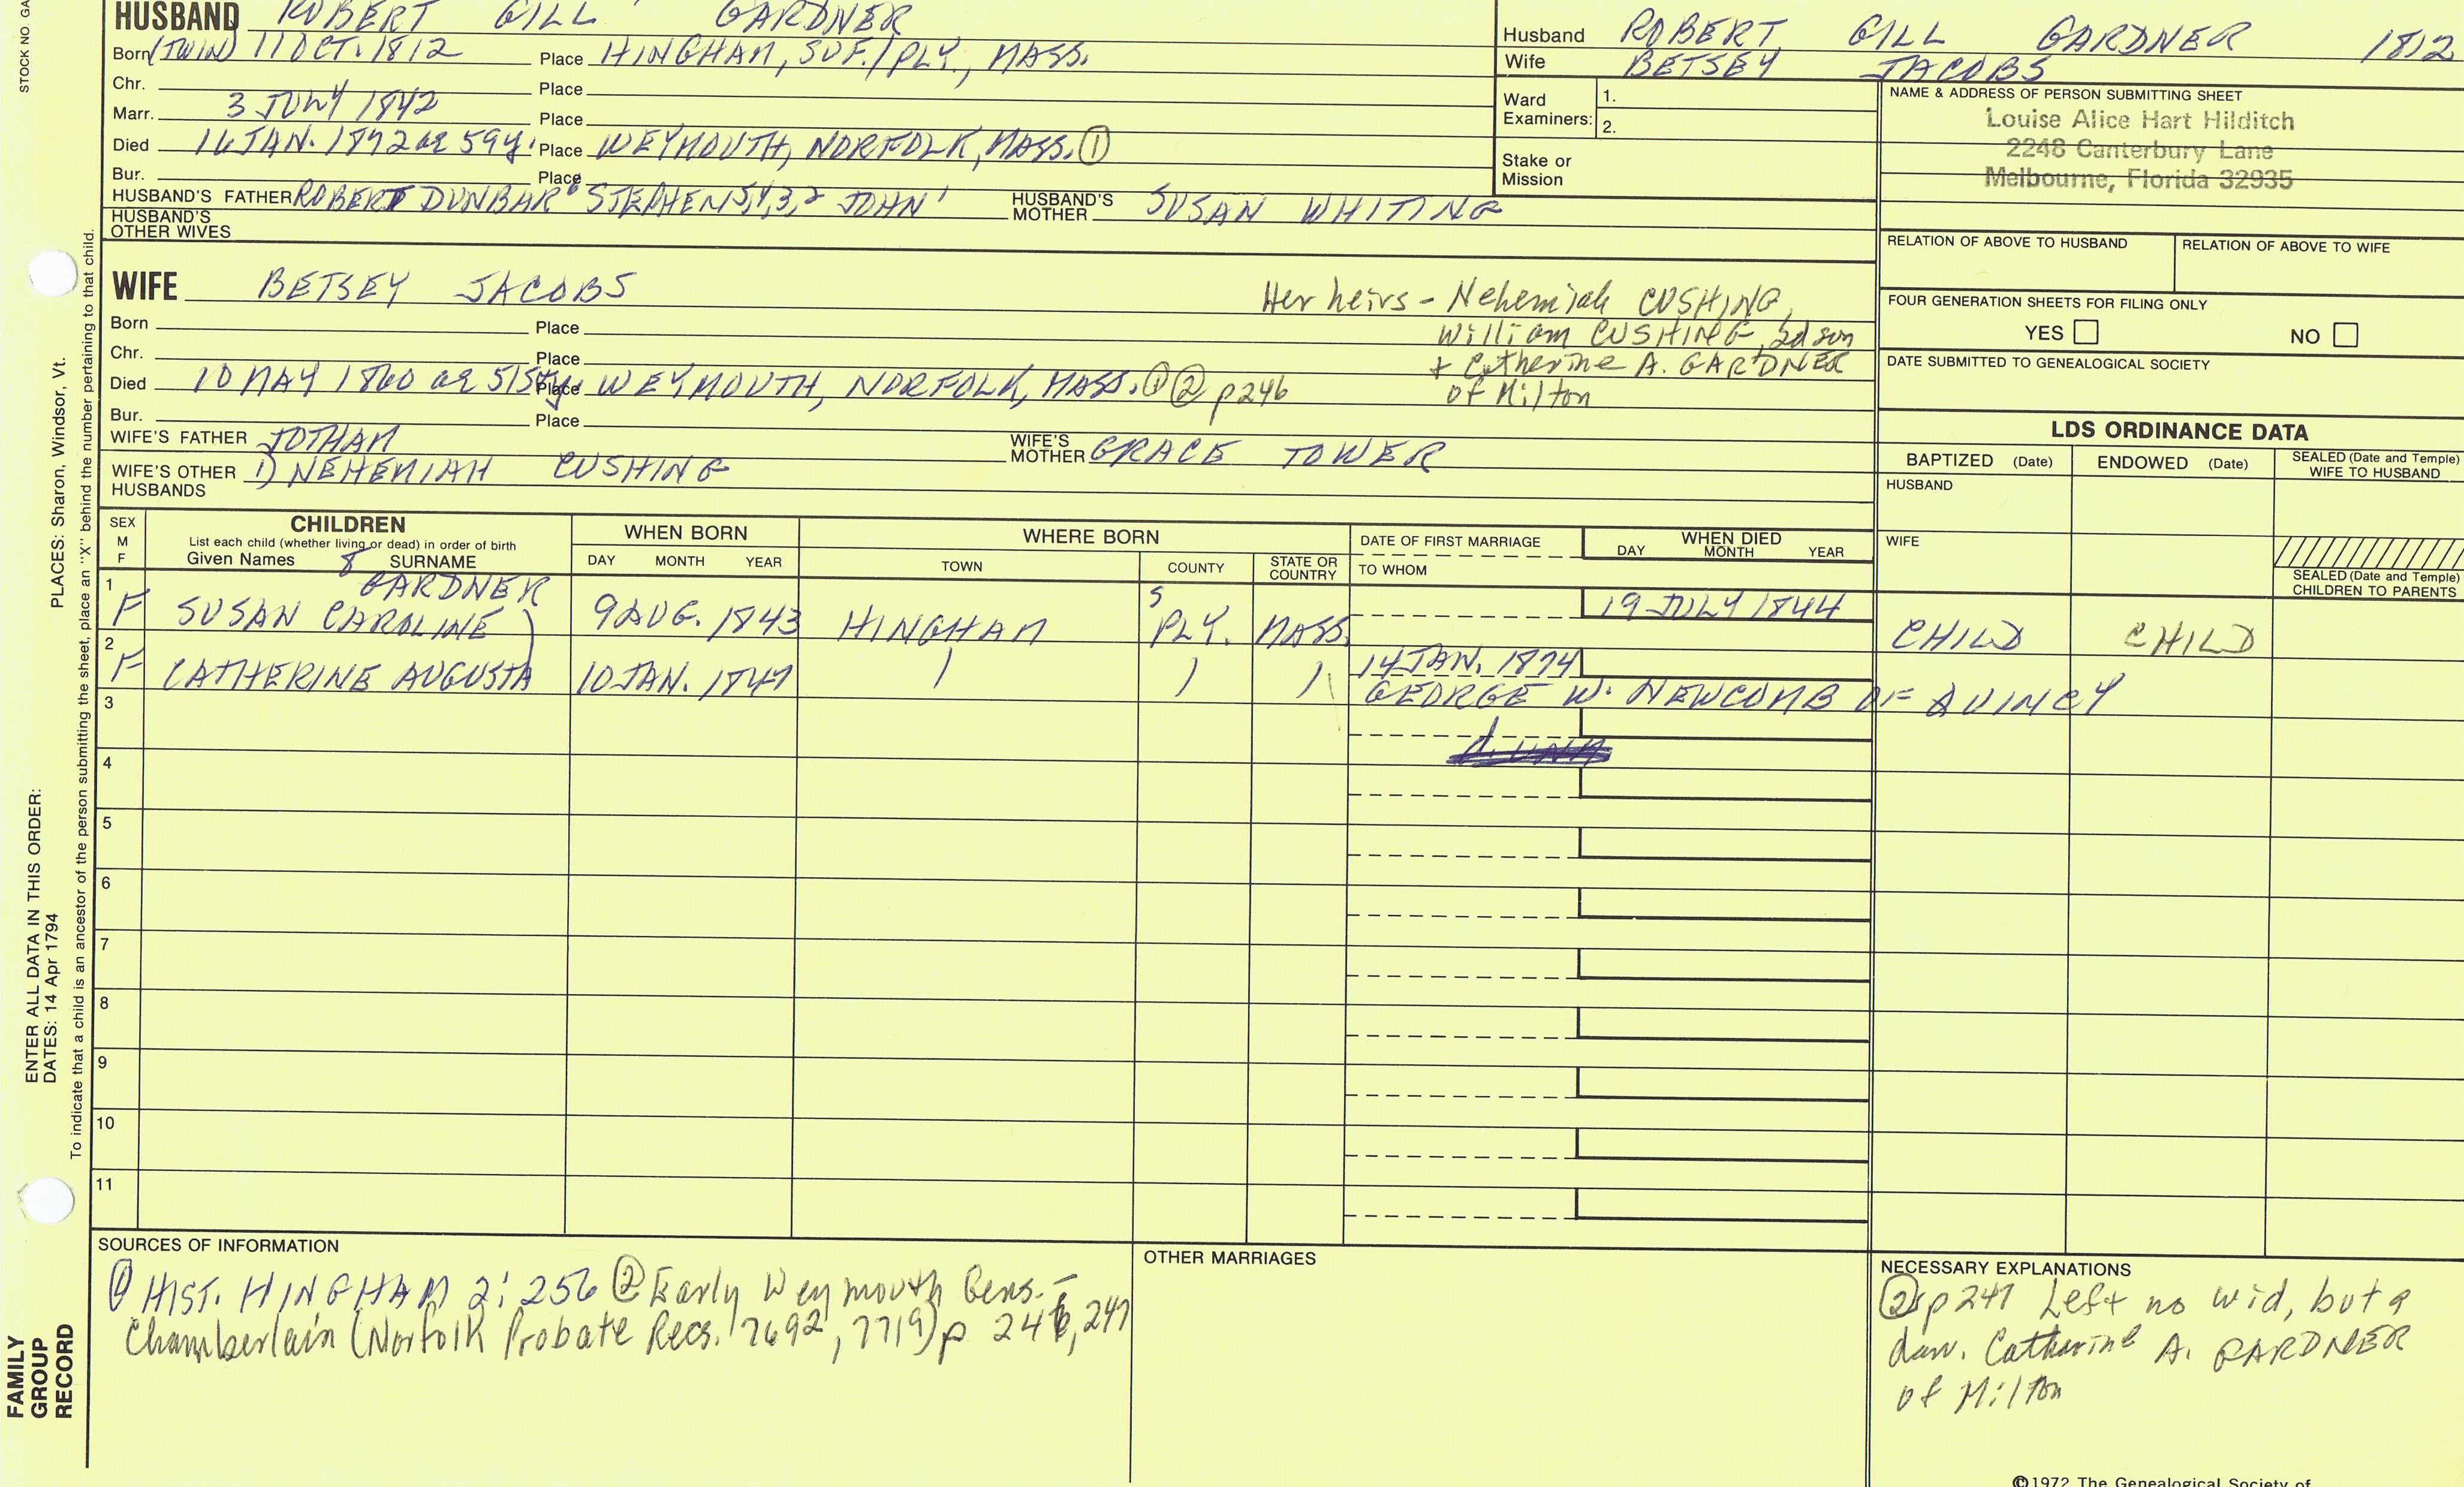 STOCK NO. GA
HUSBAND ROBERT GILL GARDNER
Born (TWIN) 11 OCT. 1812 Place HINGHAM, SUF./PLY., MASS.
Chr. Place
Marr. 3 JULY 1842 Place
Died 16 JAN. 1872 ae 59y. Place WEYMOUTH, NORFOLK, MASS. ①
Bur. Place
HUSBAND'S FATHER ROBERT DUNBAR⁶ STEPHEN5,4,3,2 JOHN¹ HUSBAND'S MOTHER SUSAN WHITING
HUSBAND'S OTHER WIVES
Husband ROBERT GILL GARDNER 1812
Wife BETSEY JACOBS
Ward Examiners: 1.
2.
Stake or Mission
NAME & ADDRESS OF PERSON SUBMITTING SHEET
Louise Alice Hart Hilditch
2248 Canterbury Lane
Melbourne, Florida 32935
RELATION OF ABOVE TO HUSBAND RELATION OF ABOVE TO WIFE
FOUR GENERATION SHEETS FOR FILING ONLY
YES NO
DATE SUBMITTED TO GENEALOGICAL SOCIETY
WIFE BETSEY JACOBS
Her heirs - Nehemiah CUSHING,
William CUSHING, 2d son
+ Catherine A. GARDNER
of Milton
Born Place
Chr. Place
Died 10 MAY 1860 ae Place WEYMOUTH, NORFOLK, MASS. ①② p246
Bur. Place
WIFE'S FATHER JOTHAM WIFE'S MOTHER GRACE TOWER
WIFE'S OTHER HUSBANDS 1) NEHEMIAH CUSHING
LDS ORDINANCE DATA
BAPTIZED (Date) ENDOWED (Date) SEALED (Date and Temple) WIFE TO HUSBAND
HUSBAND
WIFE
SEALED (Date and Temple) CHILDREN TO PARENTS
SEX M F
CHILDREN
List each child (whether living or dead) in order of birth
Given Names 8 SURNAME
WHEN BORN
DAY MONTH YEAR
WHERE BORN
TOWN COUNTY STATE OR COUNTRY
DATE OF FIRST MARRIAGE
TO WHOM
WHEN DIED
DAY MONTH YEAR
GARDNER
1 F SUSAN CAROLINE ) 9 AUG. 1843 HINGHAM S PLY. MASS. 19 JULY 1844 CHILD CHILD
2 F CATHERINE AUGUSTA 10 JAN. 1847 14 JAN. 1874
GEORGE W. NEWCOMB OF QUINCY
3
4
5
6
7
8
9
10
11
SOURCES OF INFORMATION
① HIST. HINGHAM 2:256 ② Early Weymouth Gens. -
Chamberlain (Norfolk Probate Recs. 7692, 7719) p 246, 247
OTHER MARRIAGES
NECESSARY EXPLANATIONS
② p 247 Left no wid, but a
dau. Catherine A. GARDNER
of Milton
©1972 The Genealogical Society of
PLACES: Sharon, Windsor, Vt.
ENTER ALL DATA IN THIS ORDER:
DATES: 14 Apr 1794
To indicate that a child is an ancestor of the person submitting the sheet, place an "X" behind the number pertaining to that child.
FAMILY
GROUP
RECORD